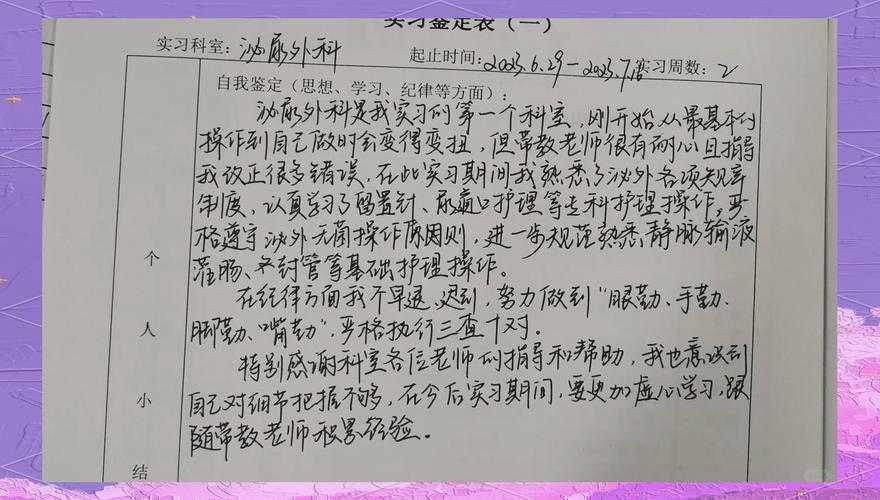 实习鉴定表（一）
实习科室：泌尿外科 起止时间：2023.6.29-2023.7.12 实习周数：2
自我鉴定（思想、学习、纪律等方面）：
泌尿外科是我实习的第一个科室，刚开始从最基本的
操作到自己做时会变得变扭，但带教老师很有耐心且指导
我改正很多错误，在此实习期间我熟悉了泌外各项规章
制度，认真学习了留置针、尿道口护理等专科护理操作，严
格遵守泌外无菌操作原因则，进一步规范熟悉静脉输液
灌肠、封管等基础护理操作。
在纪律方面我不早退、迟到，努力做到“眼勤、手勤、
脚勤、嘴勤”，严格执行三查十对。
特别感谢科室各位老师的指导和帮助，我也意识到
自己对细节把握不够，在今后实习期间，要更加虚心学习，跟
随带教老师积累经验。
个
人
小
结